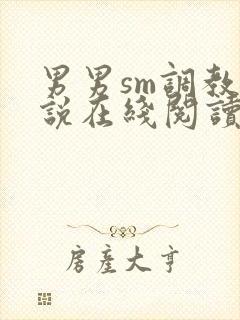 男男sm調教
說在綫閱讀
房產大亨